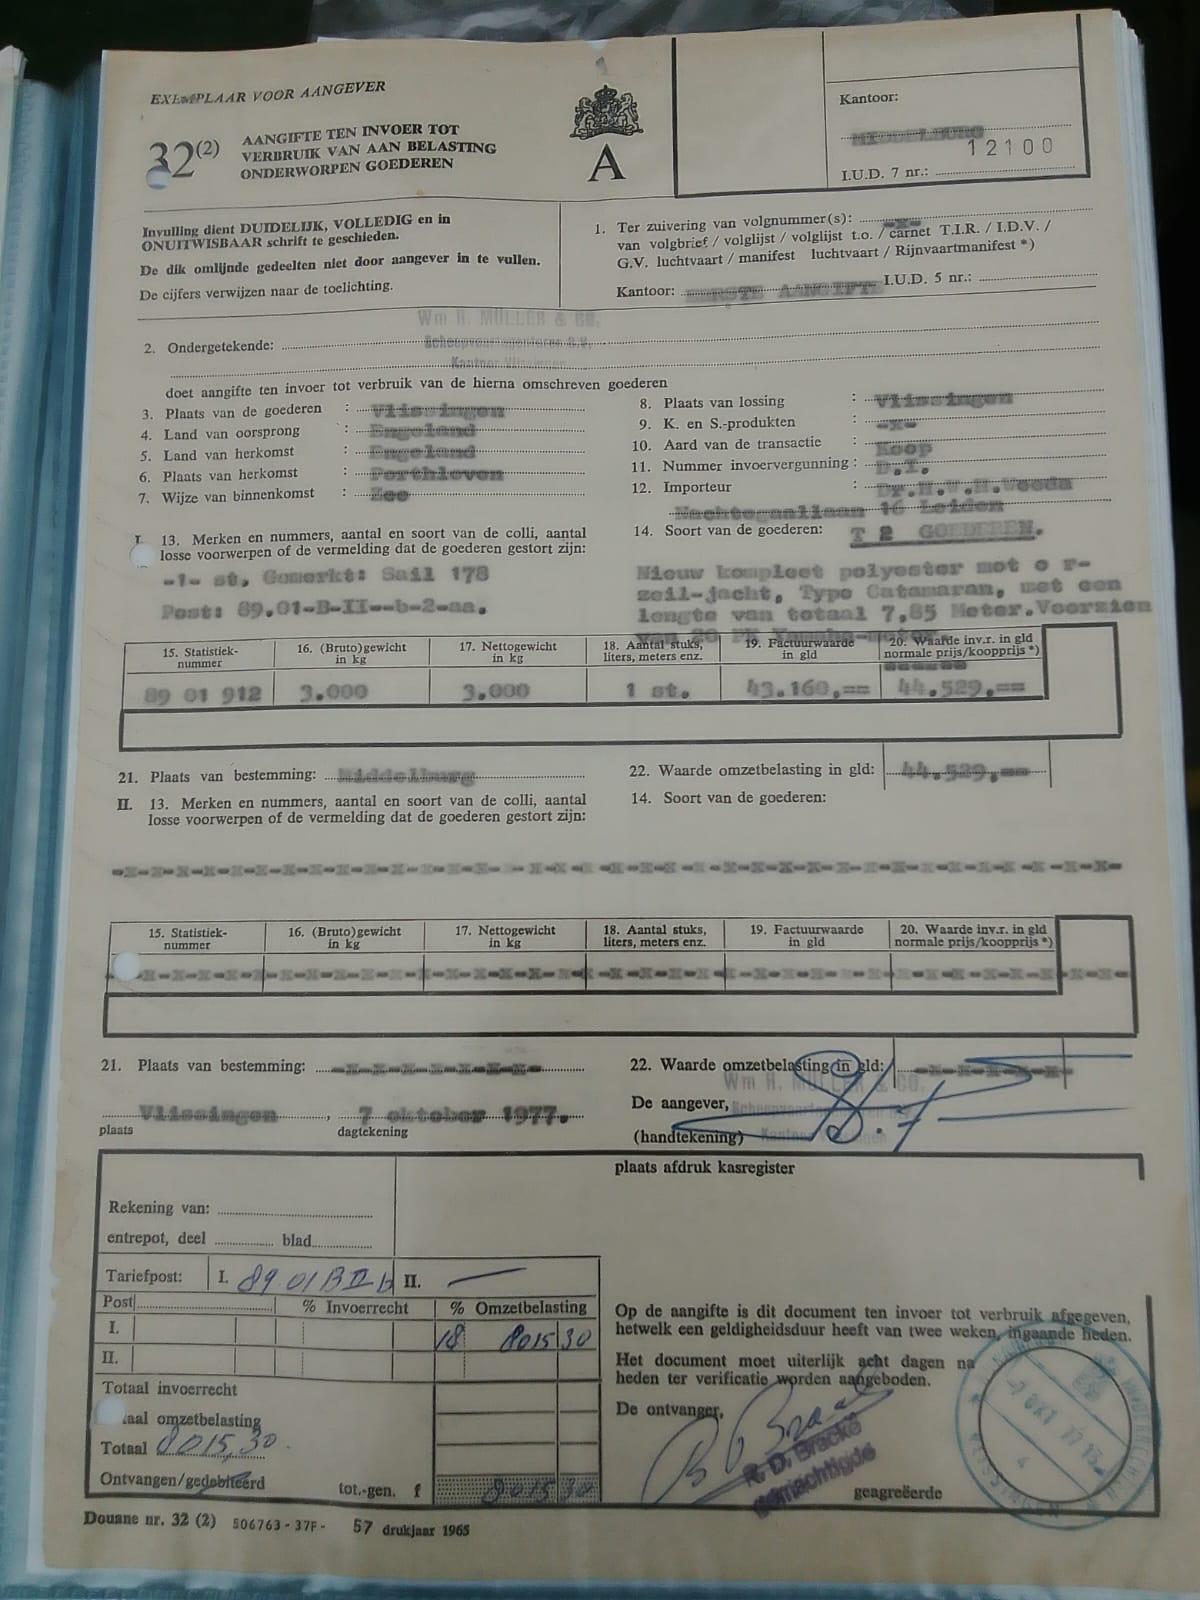 EXEMPLAAR VOOR AANGEVER
32(2) AANGIFTE TEN INVOER TOT
VERBRUIK VAN AAN BELASTING
ONDERWORPEN GOEDEREN
A
Kantoor:
MIDDELBURG
12100
I.U.D. 7 nr.:
Invulling dient DUIDELIJK, VOLLEDIG en in
ONUITWISBAAR schrift te geschieden.
De dik omlijnde gedeelten niet door aangever in te vullen.
De cijfers verwijzen naar de toelichting.
1. Ter zuivering van volgnummer(s): -x-
van volgbrief / volglijst / volglijst t.o. / carnet T.I.R. / I.D.V. /
G.V. luchtvaart / manifest luchtvaart / Rijnvaartmanifest *)
Kantoor: EERSTE AANGIFTE I.U.D. 5 nr.:
Wm H. MULLER & CO.
2. Ondergetekende:
Kantoor Vlissingen
doet aangifte ten invoer tot verbruik van de hierna omschreven goederen
3. Plaats van de goederen : Vlissingen
4. Land van oorsprong : Engeland
5. Land van herkomst : Engeland
6. Plaats van herkomst : Porthleven
7. Wijze van binnenkomst : Zee
8. Plaats van lossing : Vlissingen
9. K. en S.-produkten : -x-
10. Aard van de transactie : Koop
11. Nummer invoervergunning : D.I.
12. Importeur : Dr.H.W.H.Weeda
Nachtegaallaan 16 Leiden
I. 13. Merken en nummers, aantal en soort van de colli, aantal
losse voorwerpen of de vermelding dat de goederen gestort zijn:
-1- st. Gemerkt: Sail 178
Post: 89.01-B-II--b-2-aa.
14. Soort van de goederen: T 2 GOEDEREN.
Nieuw kompleet polyester mot o r-
zeil-jacht, Type Catamaran, met een
lengte van totaal 7,85 Meter.Voorzien
van 20 PK Yamaha-motor
15. Statistiek-
nummer
16. (Bruto)gewicht
in kg
17. Nettogewicht
in kg
18. Aantal stuks,
liters, meters enz.
19. Factuurwaarde
in gld
20. Waarde inv.r. in gld
normale prijs/koopprijs *)
89 01 912 3.000 3.000 1 st. 43.160,== 44.529,==
21. Plaats van bestemming: Middelburg
22. Waarde omzetbelasting in gld: 44.529,==
II. 13. Merken en nummers, aantal en soort van de colli, aantal
losse voorwerpen of de vermelding dat de goederen gestort zijn:
14. Soort van de goederen:
-x-x-x-x-x-x-x-x-x-x-x-x-x-x-x-x-x-x-x-x-x-x-x-x-x-x-x-x-x-x-x-x-x-x-
15. Statistiek-
nummer
16. (Bruto)gewicht
in kg
17. Nettogewicht
in kg
18. Aantal stuks,
liters, meters enz.
19. Factuurwaarde
in gld
20. Waarde inv.r. in gld
normale prijs/koopprijs *)
-x-x-x-x-x-x-x-x-x-x-x-x-x-x-x-x-x-x-x-x-x-x-x-x-x-x-x-x-x-x-x-x-x-x-
21. Plaats van bestemming: -x-x-x-x-x-x-x-
22. Waarde omzetbelasting in gld: -x-x-x-x-x-
Wm H. MULLER & CO.
Vlissingen, 7 oktober 1977.
plaats dagtekening
De aangever,
(handtekening)
plaats afdruk kasregister
Rekening van:
entrepot, deel blad
Tariefpost: I. 89.01 B II b II. —
Post % Invoerrecht % Omzetbelasting
I. 18 8015 30
II.
Totaal invoerrecht
aal omzetbelasting
Totaal 8015,30
Ontvangen/gedebiteerd tot.-gen. f 8015 30
Op de aangifte is dit document ten invoer tot verbruik afgegeven,
hetwelk een geldigheidsduur heeft van twee weken, ingaande heden.
Het document moet uiterlijk acht dagen na
heden ter verificatie worden aangeboden.
De ontvanger,
R. D. Bracke
gemachtigde
geagreëerde
-7 OKT 77 13
4
VLISSINGEN
Douane nr. 32 (2) 506763 - 37F - 57 drukjaar 1965